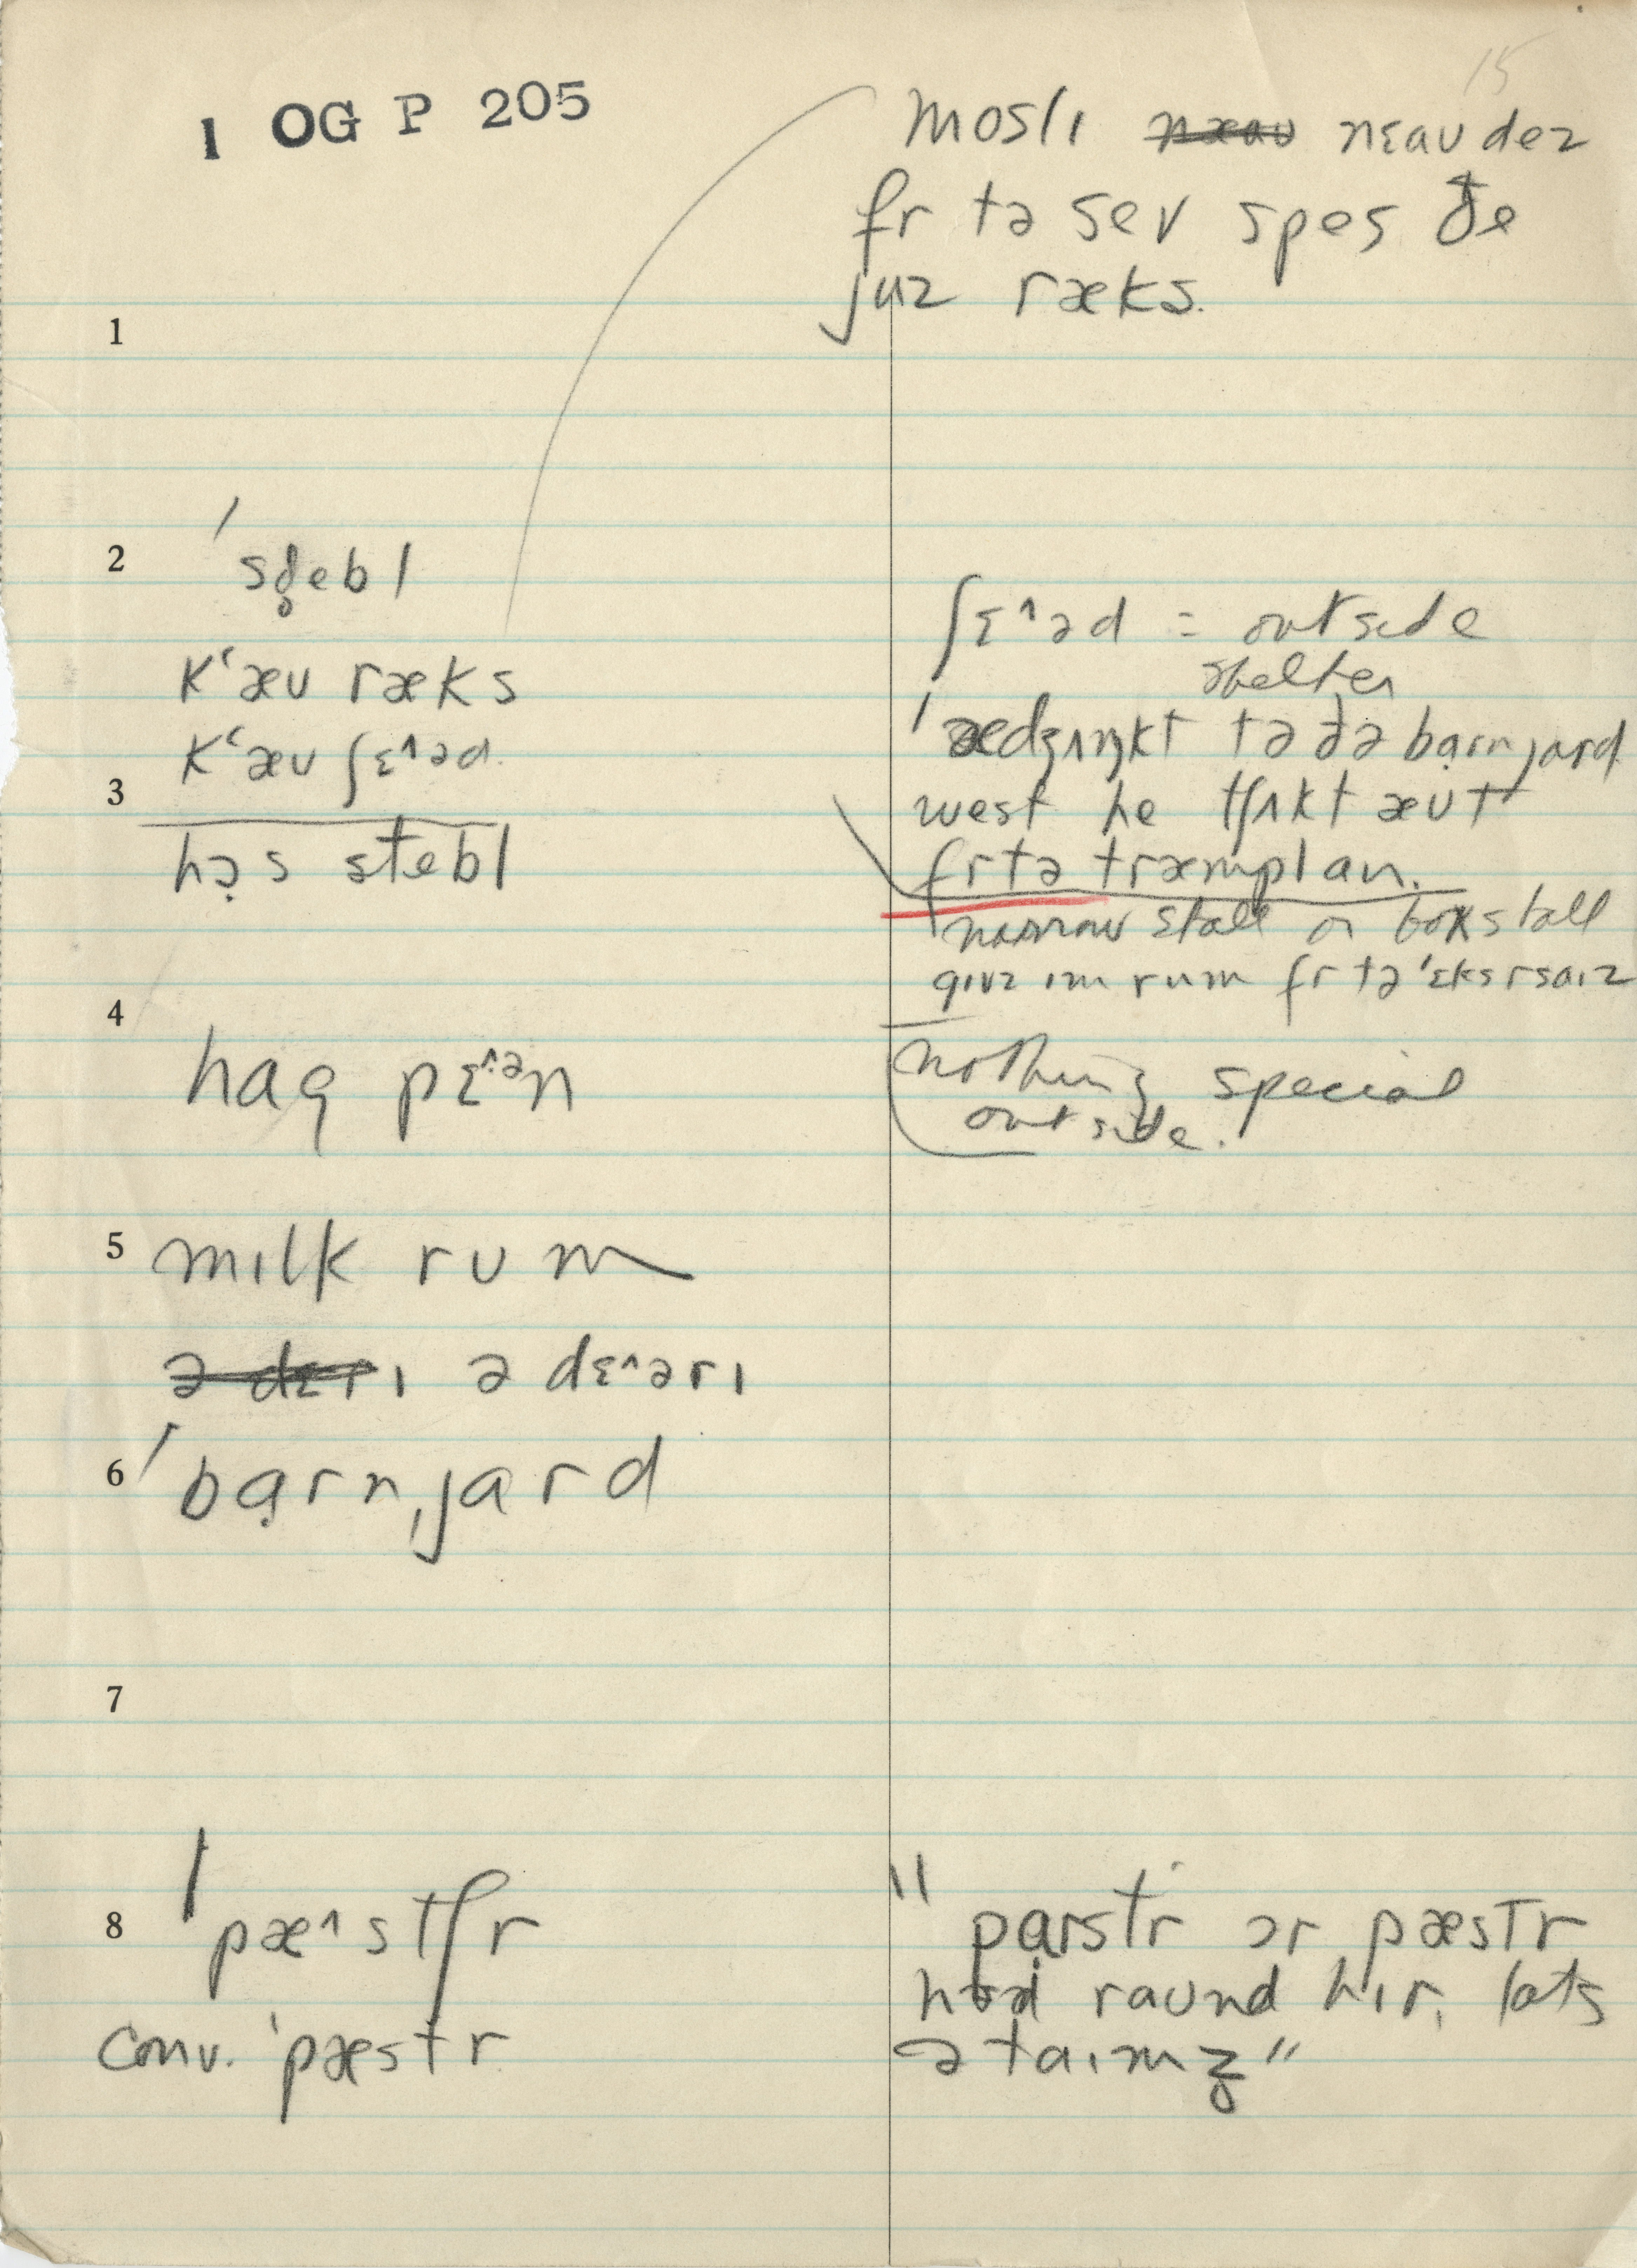 15
1 OG P 205
moslɪ n̶æ̶a̶ʊ̶ nɛaʊdez
fr tə sev spes ðe
juz ræks.
1
2 ˈsd̥ebl
kʻæʊ ræks
kʻæʊ ʃɛ^əd.
3
hə̣s stebl
ʃɛ^əd = outside
shelter
ˈædʒʌŋkt tə ðə bạrnjard
west he tʃʌkt æʊt
fr tə træmpl an.
narrow stall or boxstall
gɪvz ɪm rum fr tə ˈɛksrsaɪz
4
hag pɛ^ən
nothing special
outside.
5 mɪlk rum
ə̶ d̶ɛ̶r̶ɪ ə dɛ^ərɪ
6 ˈbạrnˌjard
7
8 ˈpæ^stʃr
conv. ˈpæstr
"pạrstr ər pæstr
raʊnd hɪr, lats
ə taɪmz̥"